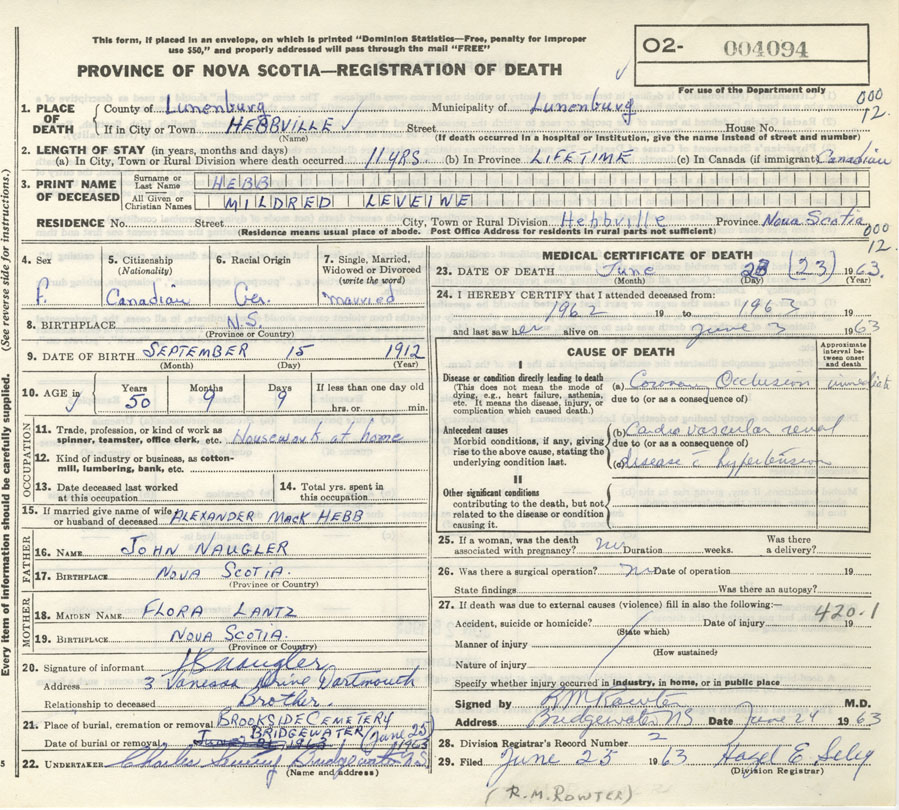 This form, if placed in an envelope, on which is printed "Dominion Statistics—Free, penalty for improper
use $50," and properly addressed will pass through the mail "FREE"
O2- 004094
PROVINCE OF NOVA SCOTIA—REGISTRATION OF DEATH
For use of the Department only
000
12.
1. PLACE OF DEATH County of Lunenburg Municipality of Lunenburg
If in City or Town HEBBVILLE Street House No.
(Name) (If death occurred in a hospital or institution, give the name instead of street and number)
2. LENGTH OF STAY (in years, months and days)
(a) In City, Town or Rural Division where death occurred 11 YRS. (b) In Province LIFETIME (c) In Canada (if immigrant) Canadian
3. PRINT NAME OF DECEASED Surname or Last Name HEBB
All Given or Christian Names MILDRED LEVEINE
RESIDENCE No. Street City, Town or Rural Division Hebbville Province Nova Scotia
(Residence means usual place of abode. Post Office Address for residents in rural parts not sufficient)
000
12.
(See reverse side for instructions.)
Every item of information should be carefully supplied.
4. Sex F. 5. Citizenship (Nationality) Canadian 6. Racial Origin Ger. 7. Single, Married, Widowed or Divorced (write the word) married
8. BIRTHPLACE N.S.
(Province or Country)
9. DATE OF BIRTH SEPTEMBER 15 1912
(Month) (Day) (Year)
10. AGE in Years 50 Months 9 Days 9 If less than one day old
hrs. or min.
OCCUPATION
11. Trade, profession, or kind of work as spinner, teamster, office clerk, etc. Housework at home
12. Kind of industry or business, as cotton-mill, lumbering, bank, etc.
13. Date deceased last worked at this occupation 14. Total yrs. spent in this occupation
15. If married give name of wife or husband of deceased ALEXANDER MACK HEBB
FATHER
16. NAME JOHN NAUGLER
17. BIRTHPLACE NOVA SCOTIA.
(Province or Country)
MOTHER
18. MAIDEN NAME FLORA LANTZ
19. BIRTHPLACE NOVA SCOTIA.
(Province or Country)
20. Signature of informant Naugler
Address 3 Vanessa Drive Dartmouth
Relationship to deceased Brother.
21. Place of burial, cremation or removal BROOKSIDE CEMETERY
BRIDGEWATER
Date of burial or removal (June 25) 1963
22. UNDERTAKER Charles
(Name and address)
MEDICAL CERTIFICATE OF DEATH
23. DATE OF DEATH June 23 (23) 1963.
(Month) (Day) (Year)
24. I HEREBY CERTIFY that I attended deceased from:
1962 19 to 1963 19
and last saw her alive on June 3 1963
CAUSE OF DEATH
Approximate interval between onset and death
I
Disease or condition directly leading to death
(This does not mean the mode of dying, e.g., heart failure, asthenia, etc. It means the disease, injury, or complication which caused death.)
(a) Coronary Occlusion immediate
due to (or as a consequence of)
Antecedent causes
Morbid conditions, if any, giving rise to the above cause, stating the underlying condition last.
(b) Cardio vascular renal
due to (or as a consequence of)
(c) disease c̄ hypertension
II
Other significant conditions
contributing to the death, but not related to the disease or condition causing it.
25. If a woman, was the death associated with pregnancy? no Duration weeks. Was there a delivery?
26. Was there a surgical operation? no Date of operation 19
State findings Was there an autopsy?
27. If death was due to external causes (violence) fill in also the following:—
420.1
Accident, suicide or homicide? Date of injury 19
(State which)
Manner of injury
(How sustained)
Nature of injury
Specify whether injury occurred in industry, in home, or in public place
Signed by RM Rowter M.D.
Address Bridgewater NS Date June 24 1963
28. Division Registrar's Record Number 2
29. Filed June 25 1963 Hazel E Seley
(Division Registrar)
(R.M. ROWTER)
5